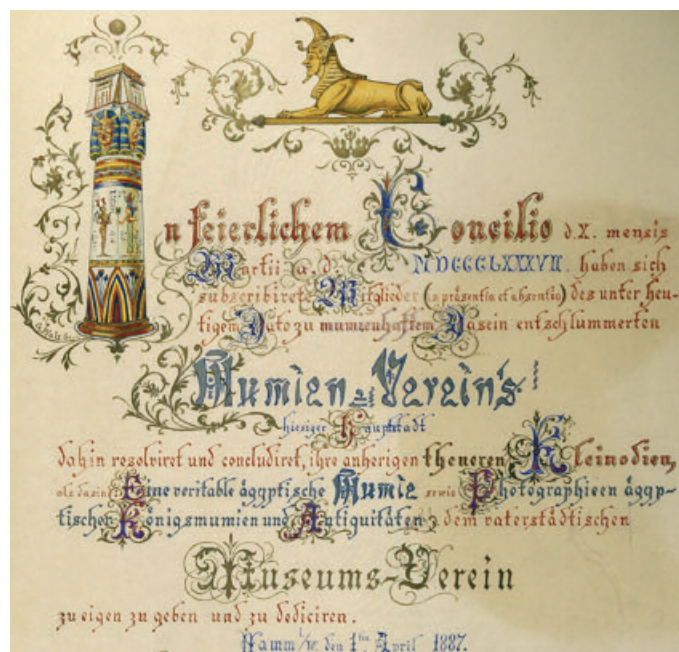 In feierlichem Concilio d. X. mensis
Martii a. d. MDCCCLXXXVII. haben sich
subscribirete Mitglieder (in präsentia et absentia) des unter heu-
tigem Dato zu mumienhaftem Dasein entschlummerten
Mumien-Verein's
hiesiger Hauptstadt
dahin resolviret und concludiret, ihre anherigen theueren Kleinodien,
als da sind: Eine veritable ägyptische Mumie sowie Photographieen ägyp-
tischer Königsmumien und Antiquitäten, dem vaterstädtischen
Museums-Verein
zu eigen zu geben und zu dediciren.
Hamm i/W. den 1ten April 1887.